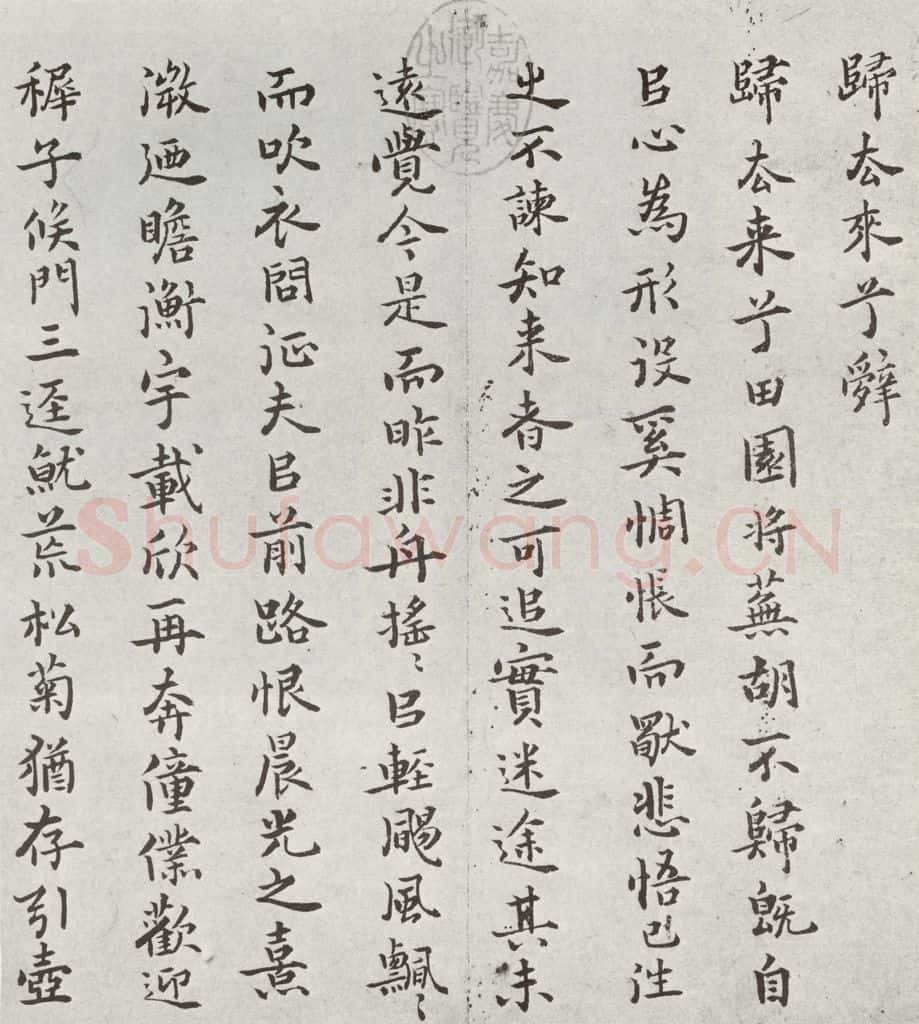 歸去來兮辭
歸去来兮田園将蕪胡不歸既自
㠯心為形役奚惆悵而獨悲悟已往
之不諫知来者之可追實迷途其未
遠覺今是而昨非舟搖〻㠯輕颺風飄〻
而吹衣問征夫㠯前路恨晨光之熹
微迺瞻衡宇載欣再奔僮僕歡迎
稺子候門三逕就荒松菊猶存引壺
嘉慶
Shufawang.CN